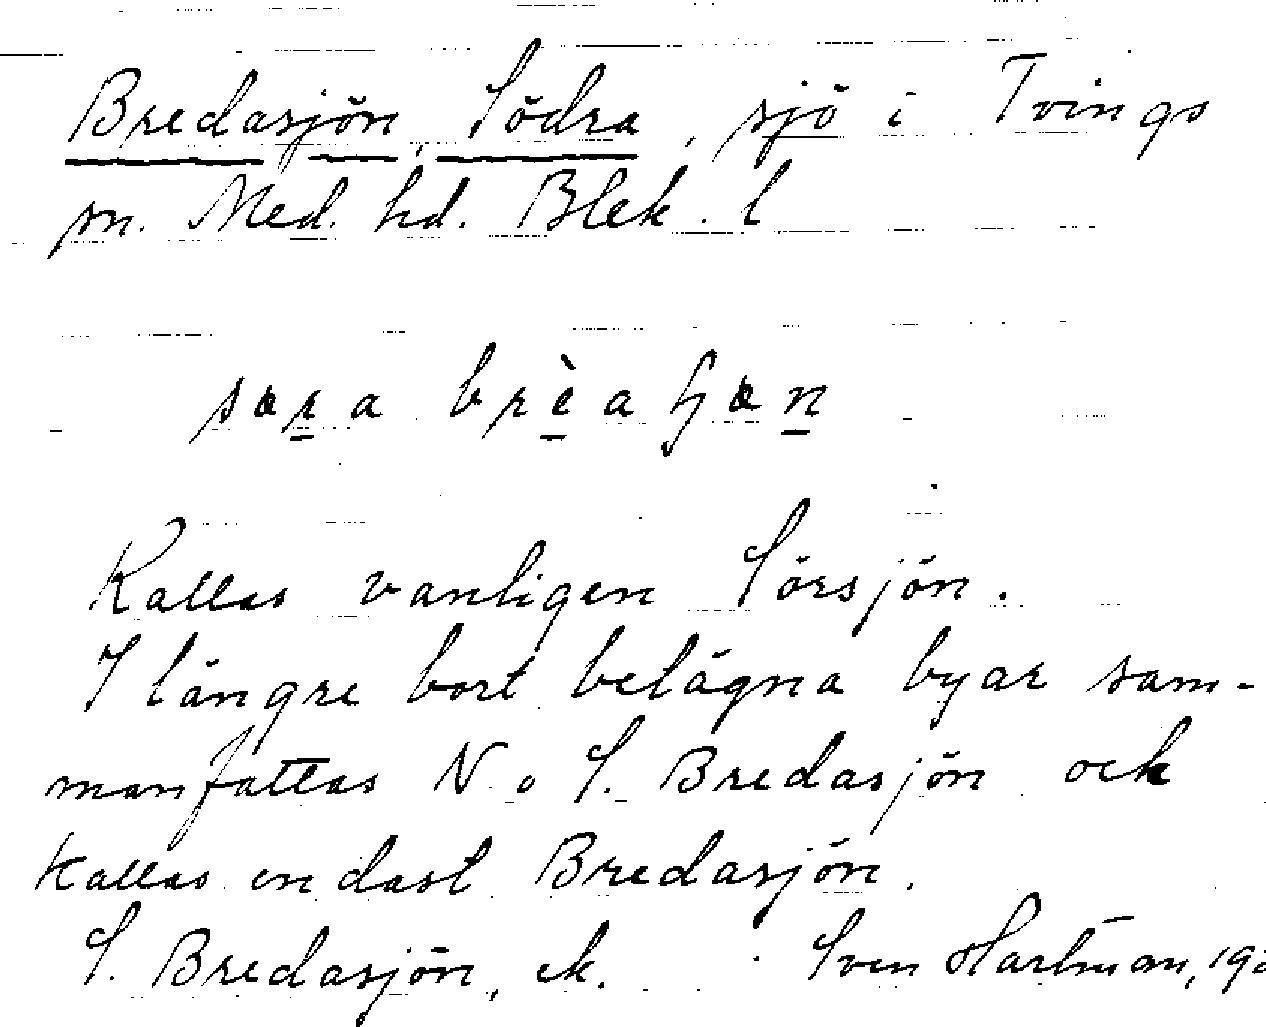 Bredasjön, Södra, sjö i Tvings
sn. Med. hd. Blek. l
Kallas vanligen Sörsjön.
I längre bort belägna byar sam-
manfattas N. o S. Bredasjön ock
kallas endast Bredasjön.
S. Bredasjön, ek. Sven Hartman, 19